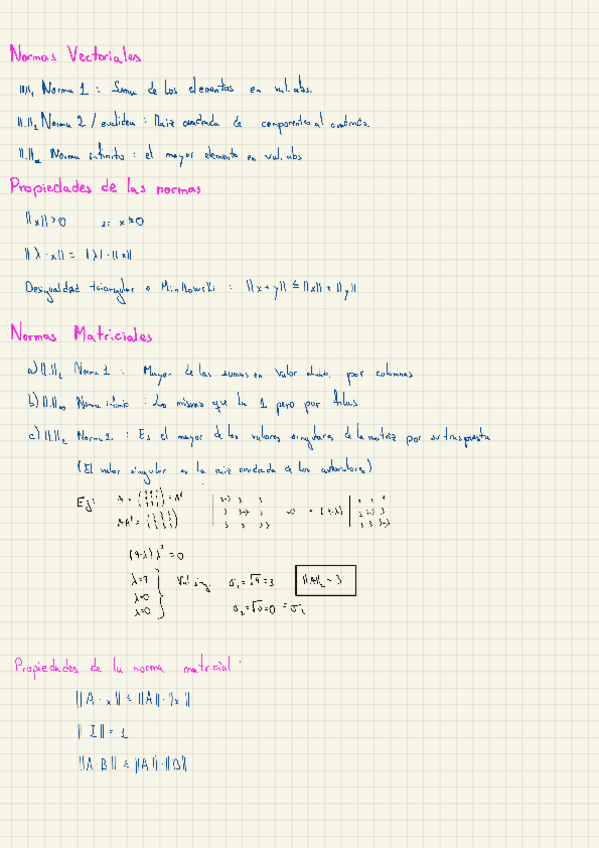 Normas Vectoriales
||.||₁ Norma 1 : Suma de los elementos en val.abs.
||.||₂ Norma 2 / euclidea : Raiz cuadrada de componentes al cuadrado
||.||∞ Norma infinito : el mayor elemento en val.abs
Propiedades de las normas
||x|| > 0 si x ≠ 0
||λ · x|| = |λ| · ||x||
Desigualdad triangular o Minkowski : ||x + y|| ≤ ||x|| + ||y||
Normas Matriciales
a) ||.||₁ Norma 1 : Mayor de las sumas en valor absoluto por columnas
b) ||.||∞ Norma infinito : Lo mismo que la 1 pero por filas
c) ||.||₂ Norma 2 : Es el mayor de los valores singulares de la matriz por su traspuesta
(El valor singular es la raiz cuadrada de los autovalores)
Ej:
(9-λ) λ² = 0
λ=9
λ=0
λ=0
Val sing.
σ₁ = √9 = 3
||A||₂ = 3
σ₂ = √0 = 0
Propiedades de la norma matricial
||A · x|| ≤ ||A|| · ||x||
||I|| = 1
||A·B|| ≤ ||A|| · ||B||